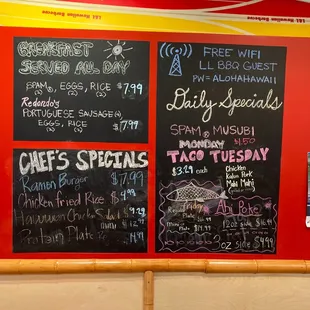 L&L Hawaiian Barbecue
BREAKFAST
SERVED ALL DAY
SPAM(2), EGGS, RICE $7.99
(2) (2)
Redondo's
PORTUGUESE SAUSAGE(4)
EGGS, RICE $7.99
(2) (2)
CHEF'S SPECIALS
Ramen Burger $7.99
Chicken Fried Rice $4.99
Hawaiian Chicken Salad $9.29
Protein Plate
FREE WIFI
LL BBQ GUEST
PW = ALOHAHAWAII
Daily Specials
SPAM® MUSUBI
MONDAY $1.50
TACO TUESDAY
$3.29 each
Chicken
Kalua Pork
Mahi Mahi
Friday
Regular
Plate
Ahi Poke
12oz side $16.99
3oz side $4.99